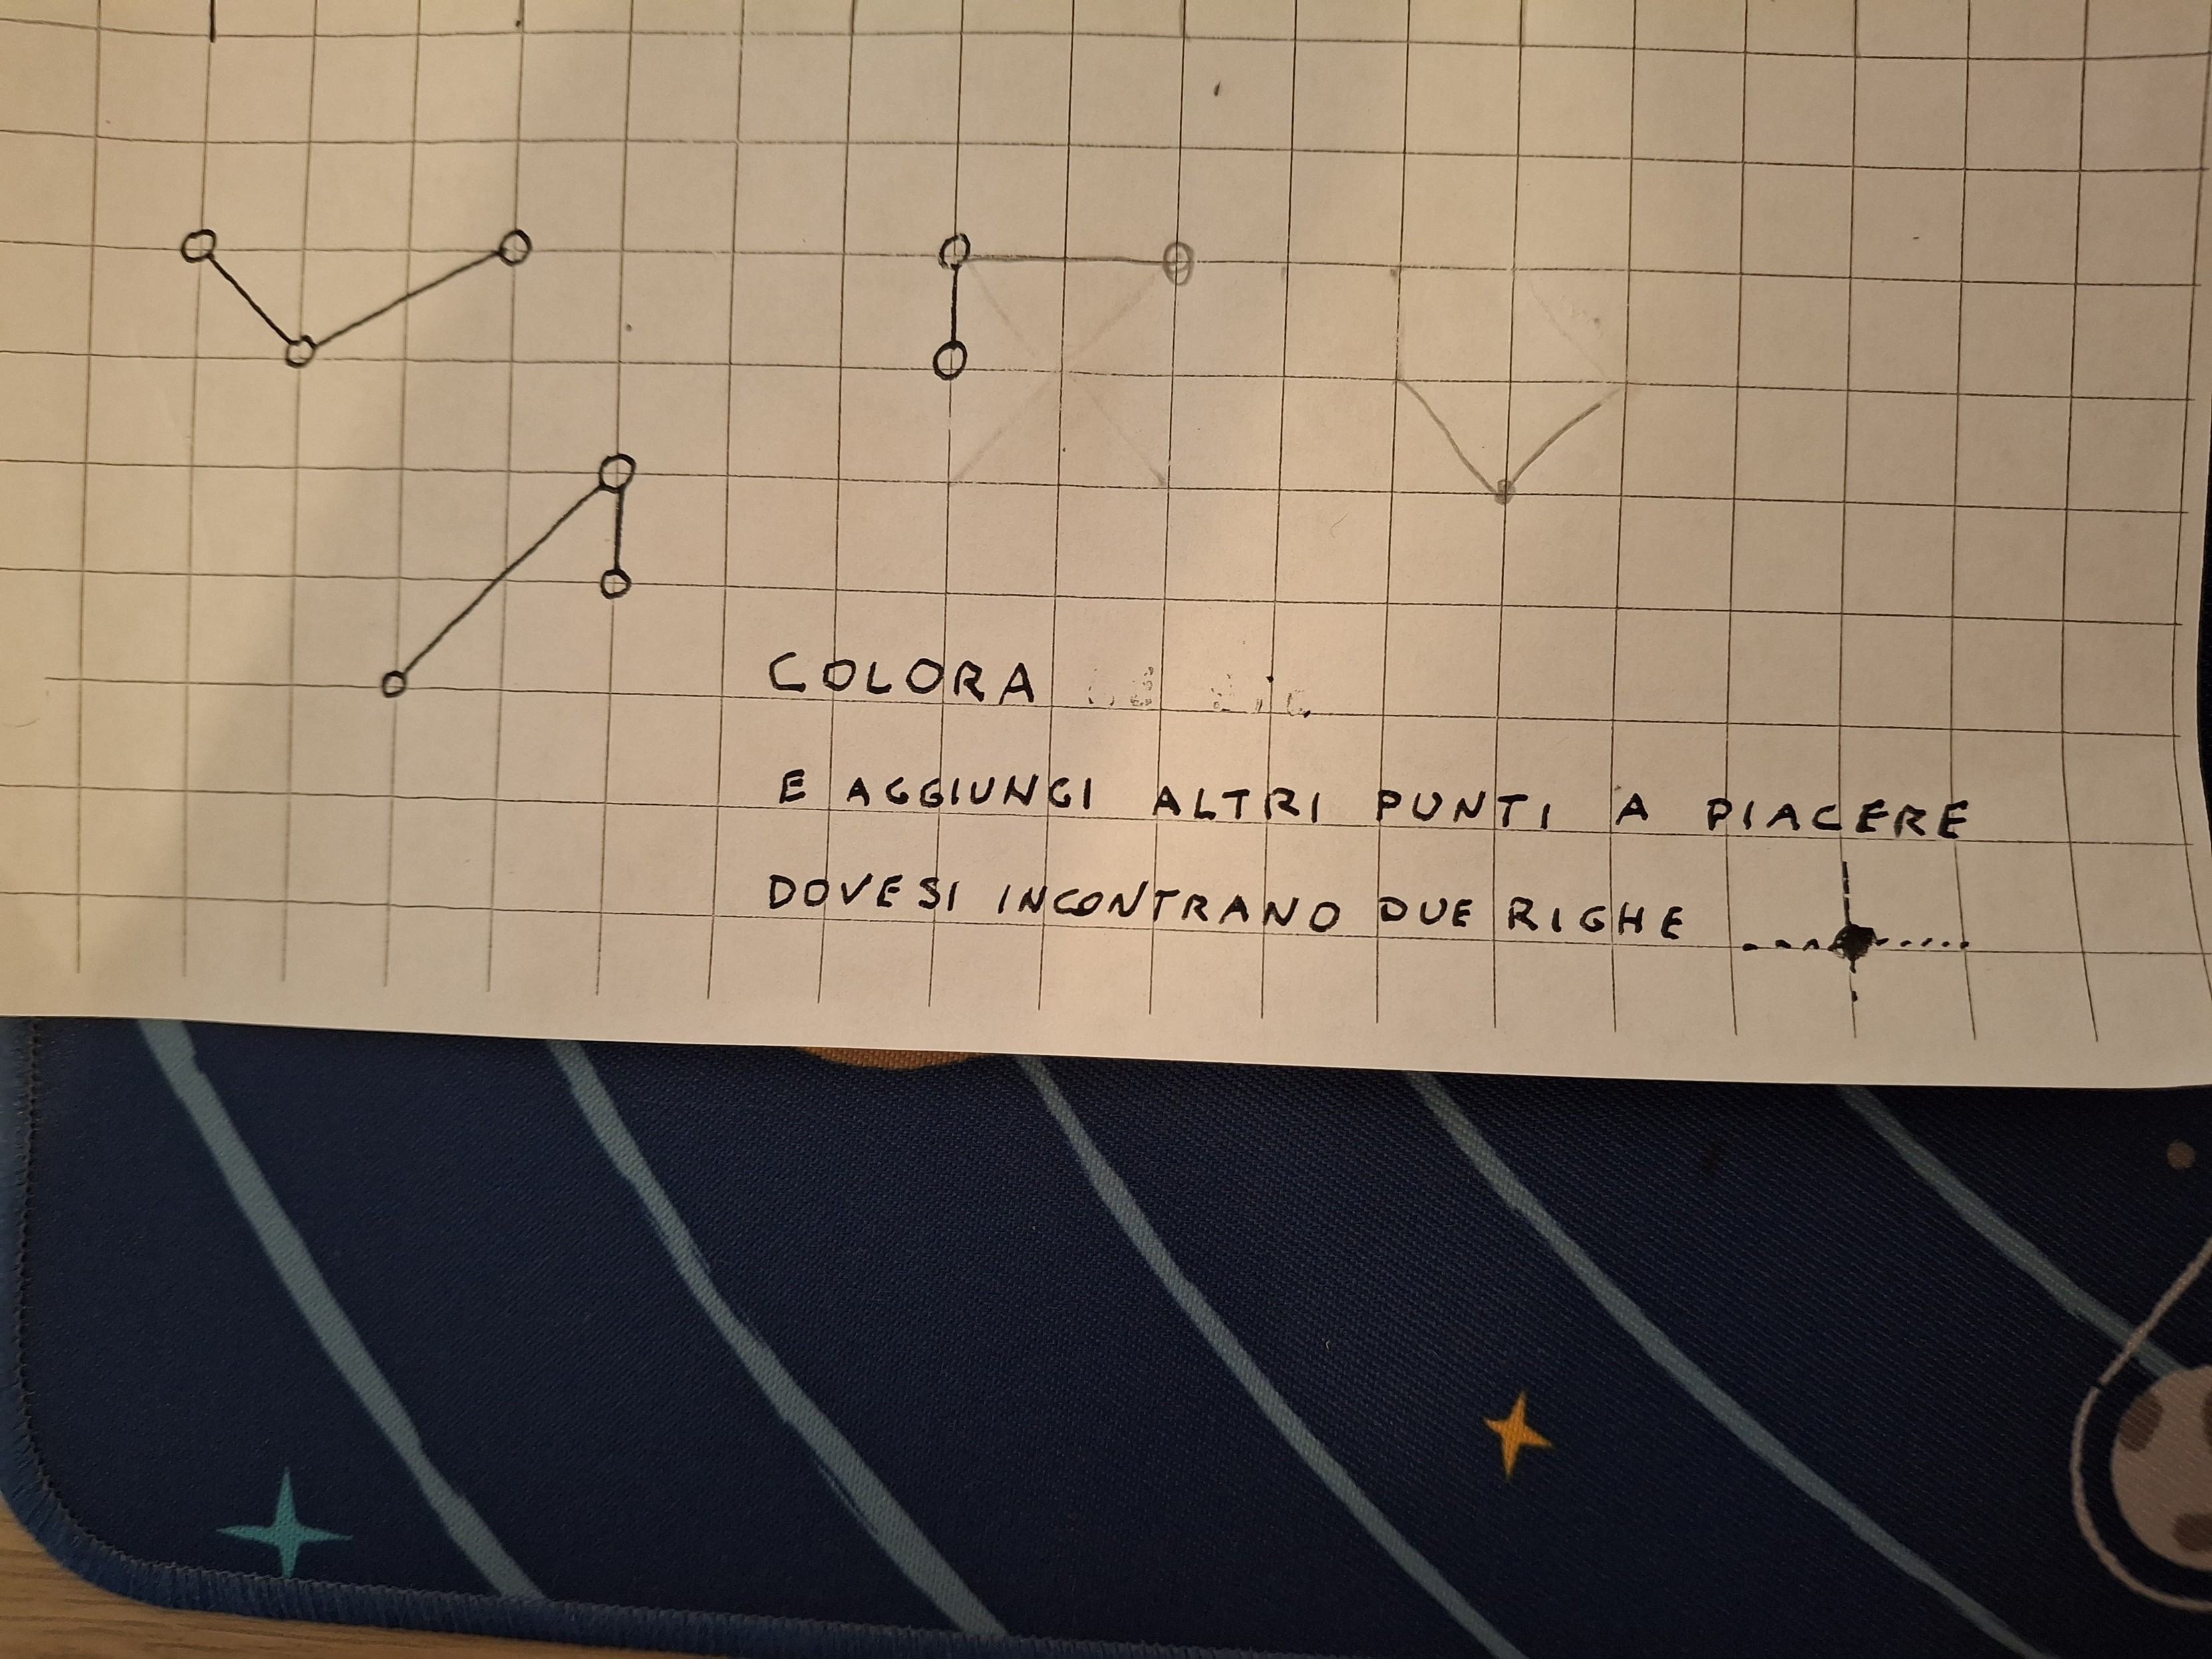 COLORA
E AGGIUNGI ALTRI PUNTI A PIACERE
DOVE SI INCONTRANO DUE RIGHE